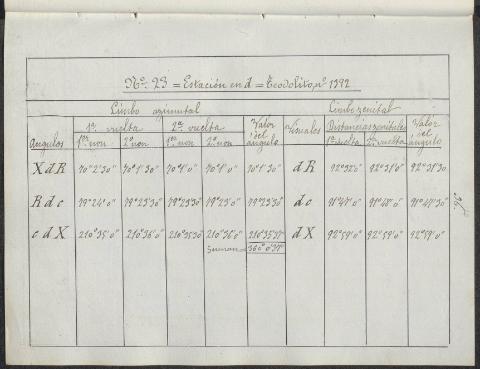 Nº 23 = Estación en d = Teodolito nº 1392
Limbo azimutal Limbo zenital
1ª vuelta 2ª vuelta Valor del ángulo Visuales Distancias zenitales Valor del ángulo
Angulos 1er non. 2º non. 1er non. 2º non. 1ª vuelta 2ª vuelta
X d R 70° 2' 30" 70° 1' 30" 70° 1' 0" 70° 1' 0" 70° 1' 30" d R 92° 32' 0" 92° 31' 0" 92° 31' 30
R d c 79° 24' 0" 79° 23' 30" 79° 23' 30" 79° 23' 0" 79° 23' 30" d c 91° 47' 0" 91° 48' 0" 91° 47' 30
c d X 210° 35' 0" 210° 36' 0" 210° 35' 30 210° 36' 0" 210° 35' 37" d X 92° 59' 0" 92° 59' 0" 92° 59' 0"
Suman = 360° 0' 37"